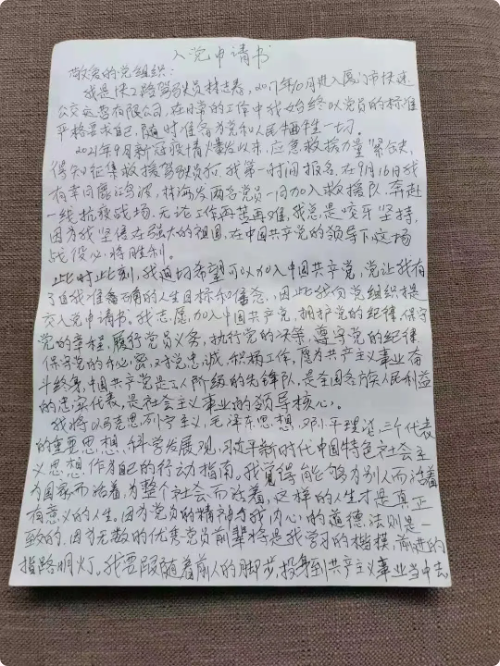 入党申请书
敬爱的党组织:
我是快2路驾驶员林志春,2017年10月进入厦门市快速
公交运营有限公司,在日常的工作中我始终以党员的标准
严格要求自己,随时准备为党和人民牺牲一切。
2021年9月新冠疫情爆发以来,应急救援力量紧缺,
得知征集救援驾驶员后,我第一时间报名,在9月16日我
有幸同展江、林海发两名党员一同加入救援队,奔赴
一线抗疫战场,无论工作再苦再难,我总是咬牙坚持,
因为我坚信在强大的祖国,在中国共产党的领导下,这场
战役必将胜利。
此时此刻,我迫切希望可以加入中国共产党,党让我有
了这我准确的人生目标和信念,因此我向党组织提
交入党申请书。我志愿加入中国共产党,拥护党的纪律,保守
党的章程,履行党员义务,执行党的决策,遵守党的纪律,
保守党的秘密,对党忠诚,积极工作,愿为共产主义事业奋
斗终身,中国共产党是工人阶级的先锋队,是全国各族人民利益
的忠实代表,是社会主义事业的领导核心。
我将以马克思列宁主义,毛泽东思想,邓小平理论,三个代表
的重要思想,科学发展观,习近平新时代中国特色社会主
义思想作为自己的行动指南。我觉得能够为别人而活着
为国家而活着,为整个社会而活着,这样的人生才是真正
有意义的人生,因为党员的精神与我内心的道德法则是一
致的,因为无数的优秀党员前辈将是我学习的楷模,前进的
指路明灯。我要跟随着前人的脚步,投身到共产主义事业当中去